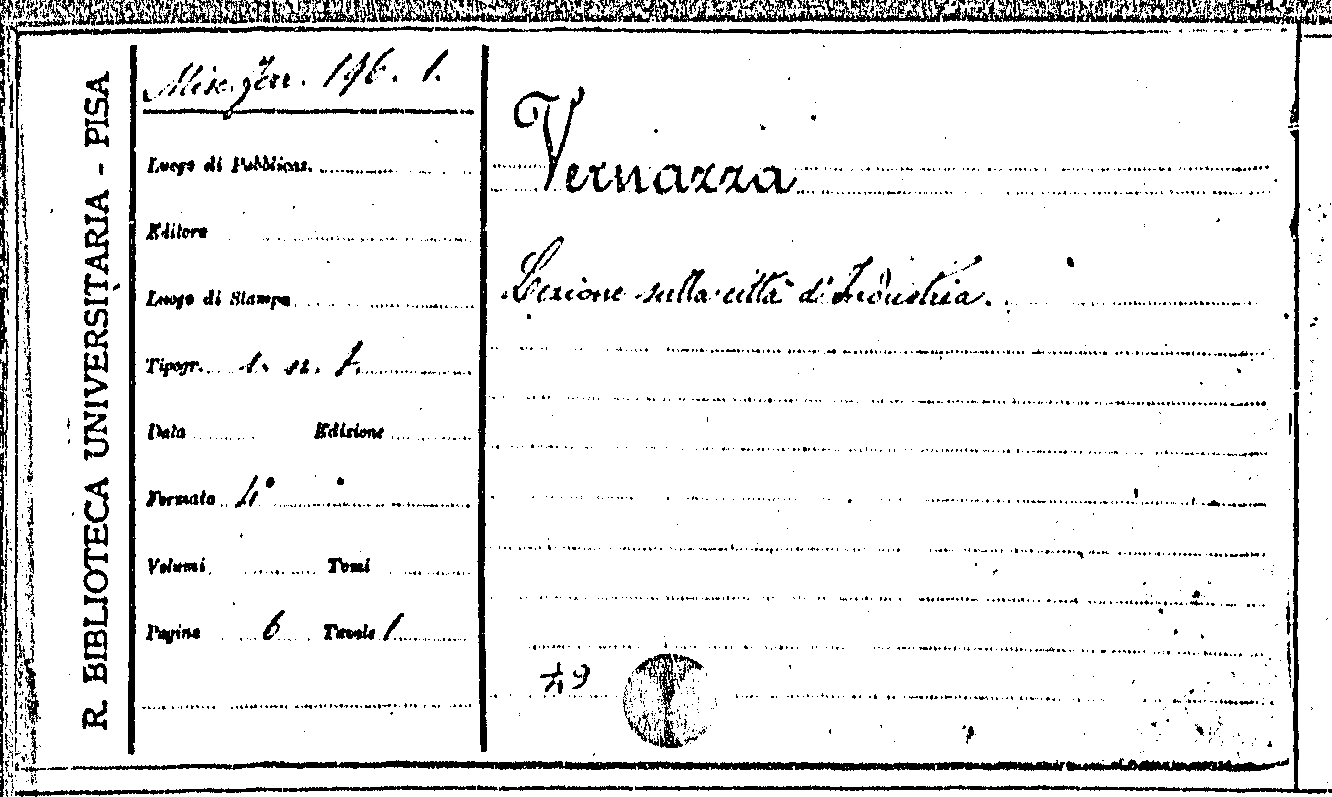 R. BIBLIOTECA UNIVERSITARIA - PISA
Misc. 196. 1.
Luogo di Pubblicaz.
Editore
Luogo di Stampa
Tipogr. s. n. t.
Data Edizione
Formato 4°
Volumi Tomi
Pagine 6 Tavole 1
Vernazza
Lezione sulla città d'Industria.